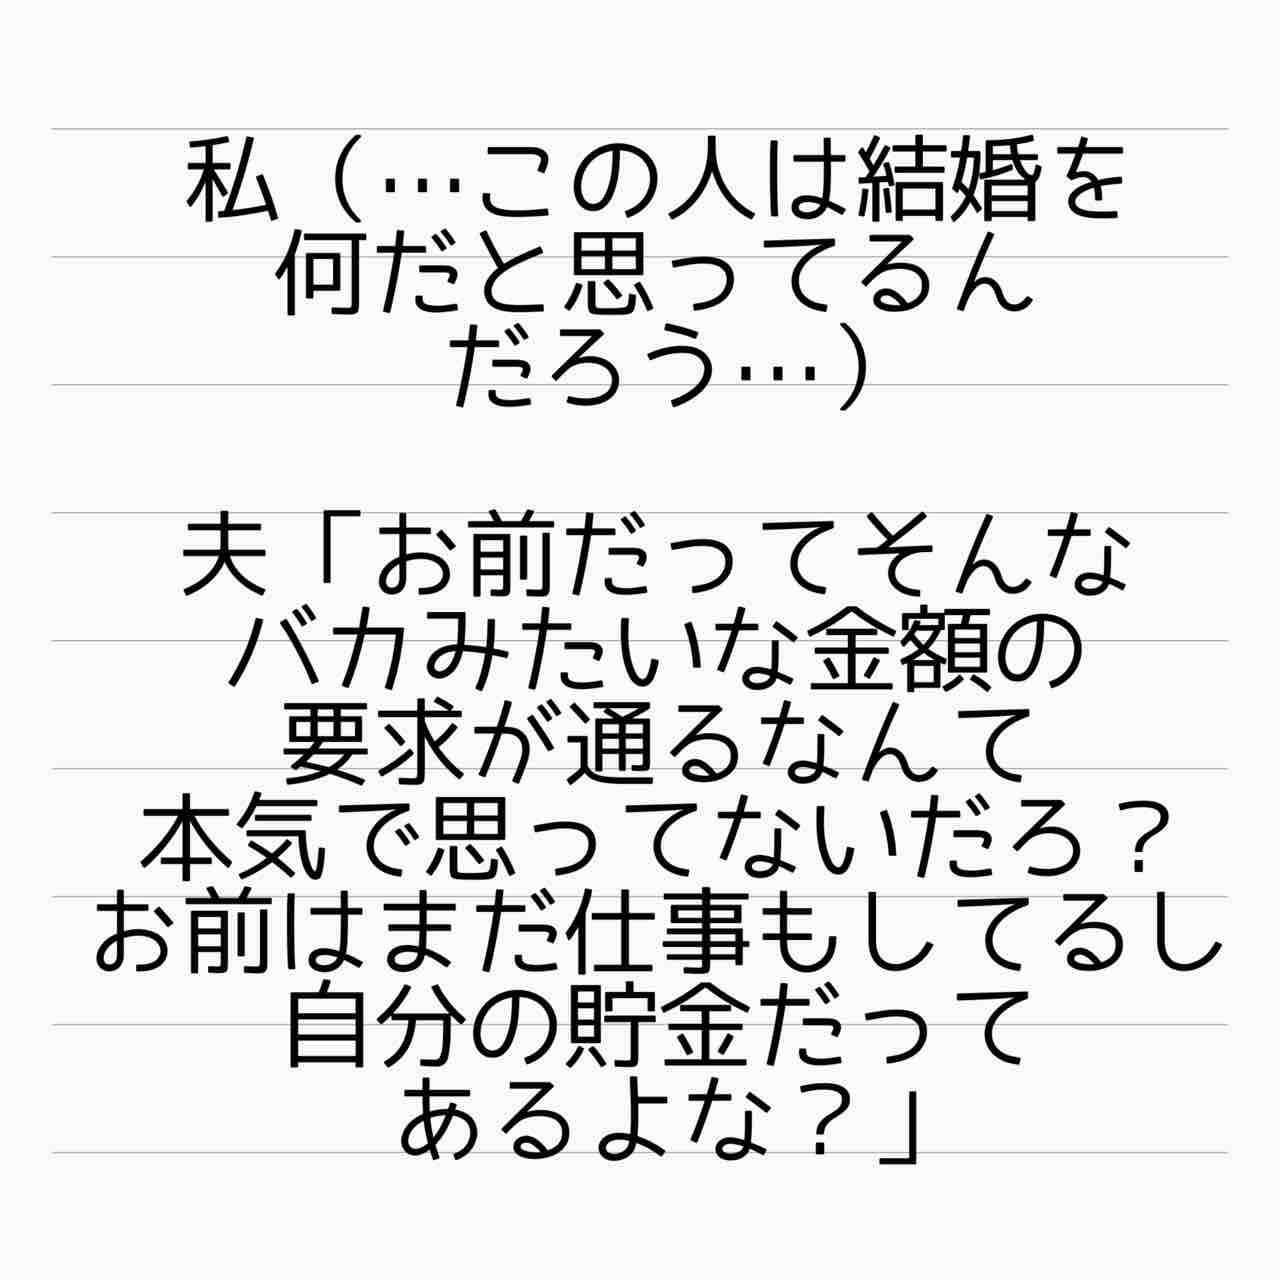 私（…この人は結婚を
何だと思ってるん
だろう…）
夫「お前だってそんな
バカみたいな金額の
要求が通るなんて
本気で思ってないだろ？
お前はまだ仕事もしてるし
自分の貯金だって
あるよな？」